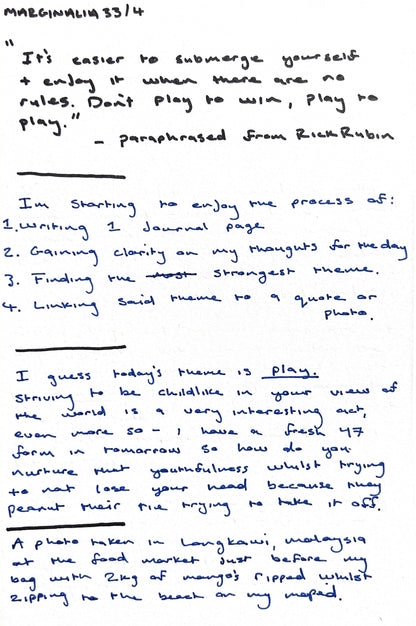 MARGINALIA 33/4
"It's easier to submerge yourself
+ enjoy it when there are no
rules. Don't play to win, play to
play."
- paraphrased from Rick Rubin
Im starting to enjoy the process of:
1. Writing 1 Journal page
2. Gaining clarity on my thoughts for the day
3. Finding the most strongest theme.
4. Linking said theme to a quote or
photo.
I guess today's theme is play.
Striving to be childlike in your view of
the world is a very interesting act,
even more so - I have a fresh 47
form in tomorrow so how do you
nurture that youthfulness whilst trying
to not lose your head because they
peanut their tie trying to take it off.
A photo taken in Langkawi, malaysia
at the food market just before my
bag with 2kg of mango's ripped whilst
zipping to the beach on my moped.